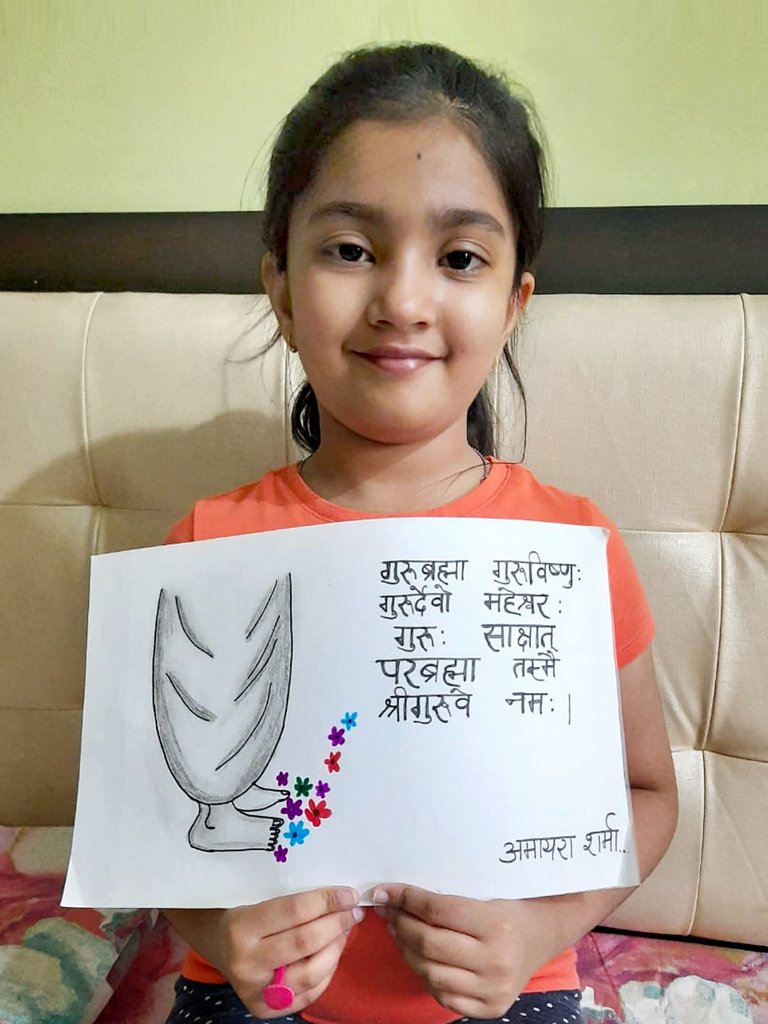 गुरुब्रह्मा गुरुविष्णुः
गुरुर्देवो महेश्वरः
गुरुः साक्षात्
परब्रह्मा तस्मै
श्रीगुरुवे नमः |
अमायरा शर्मा..